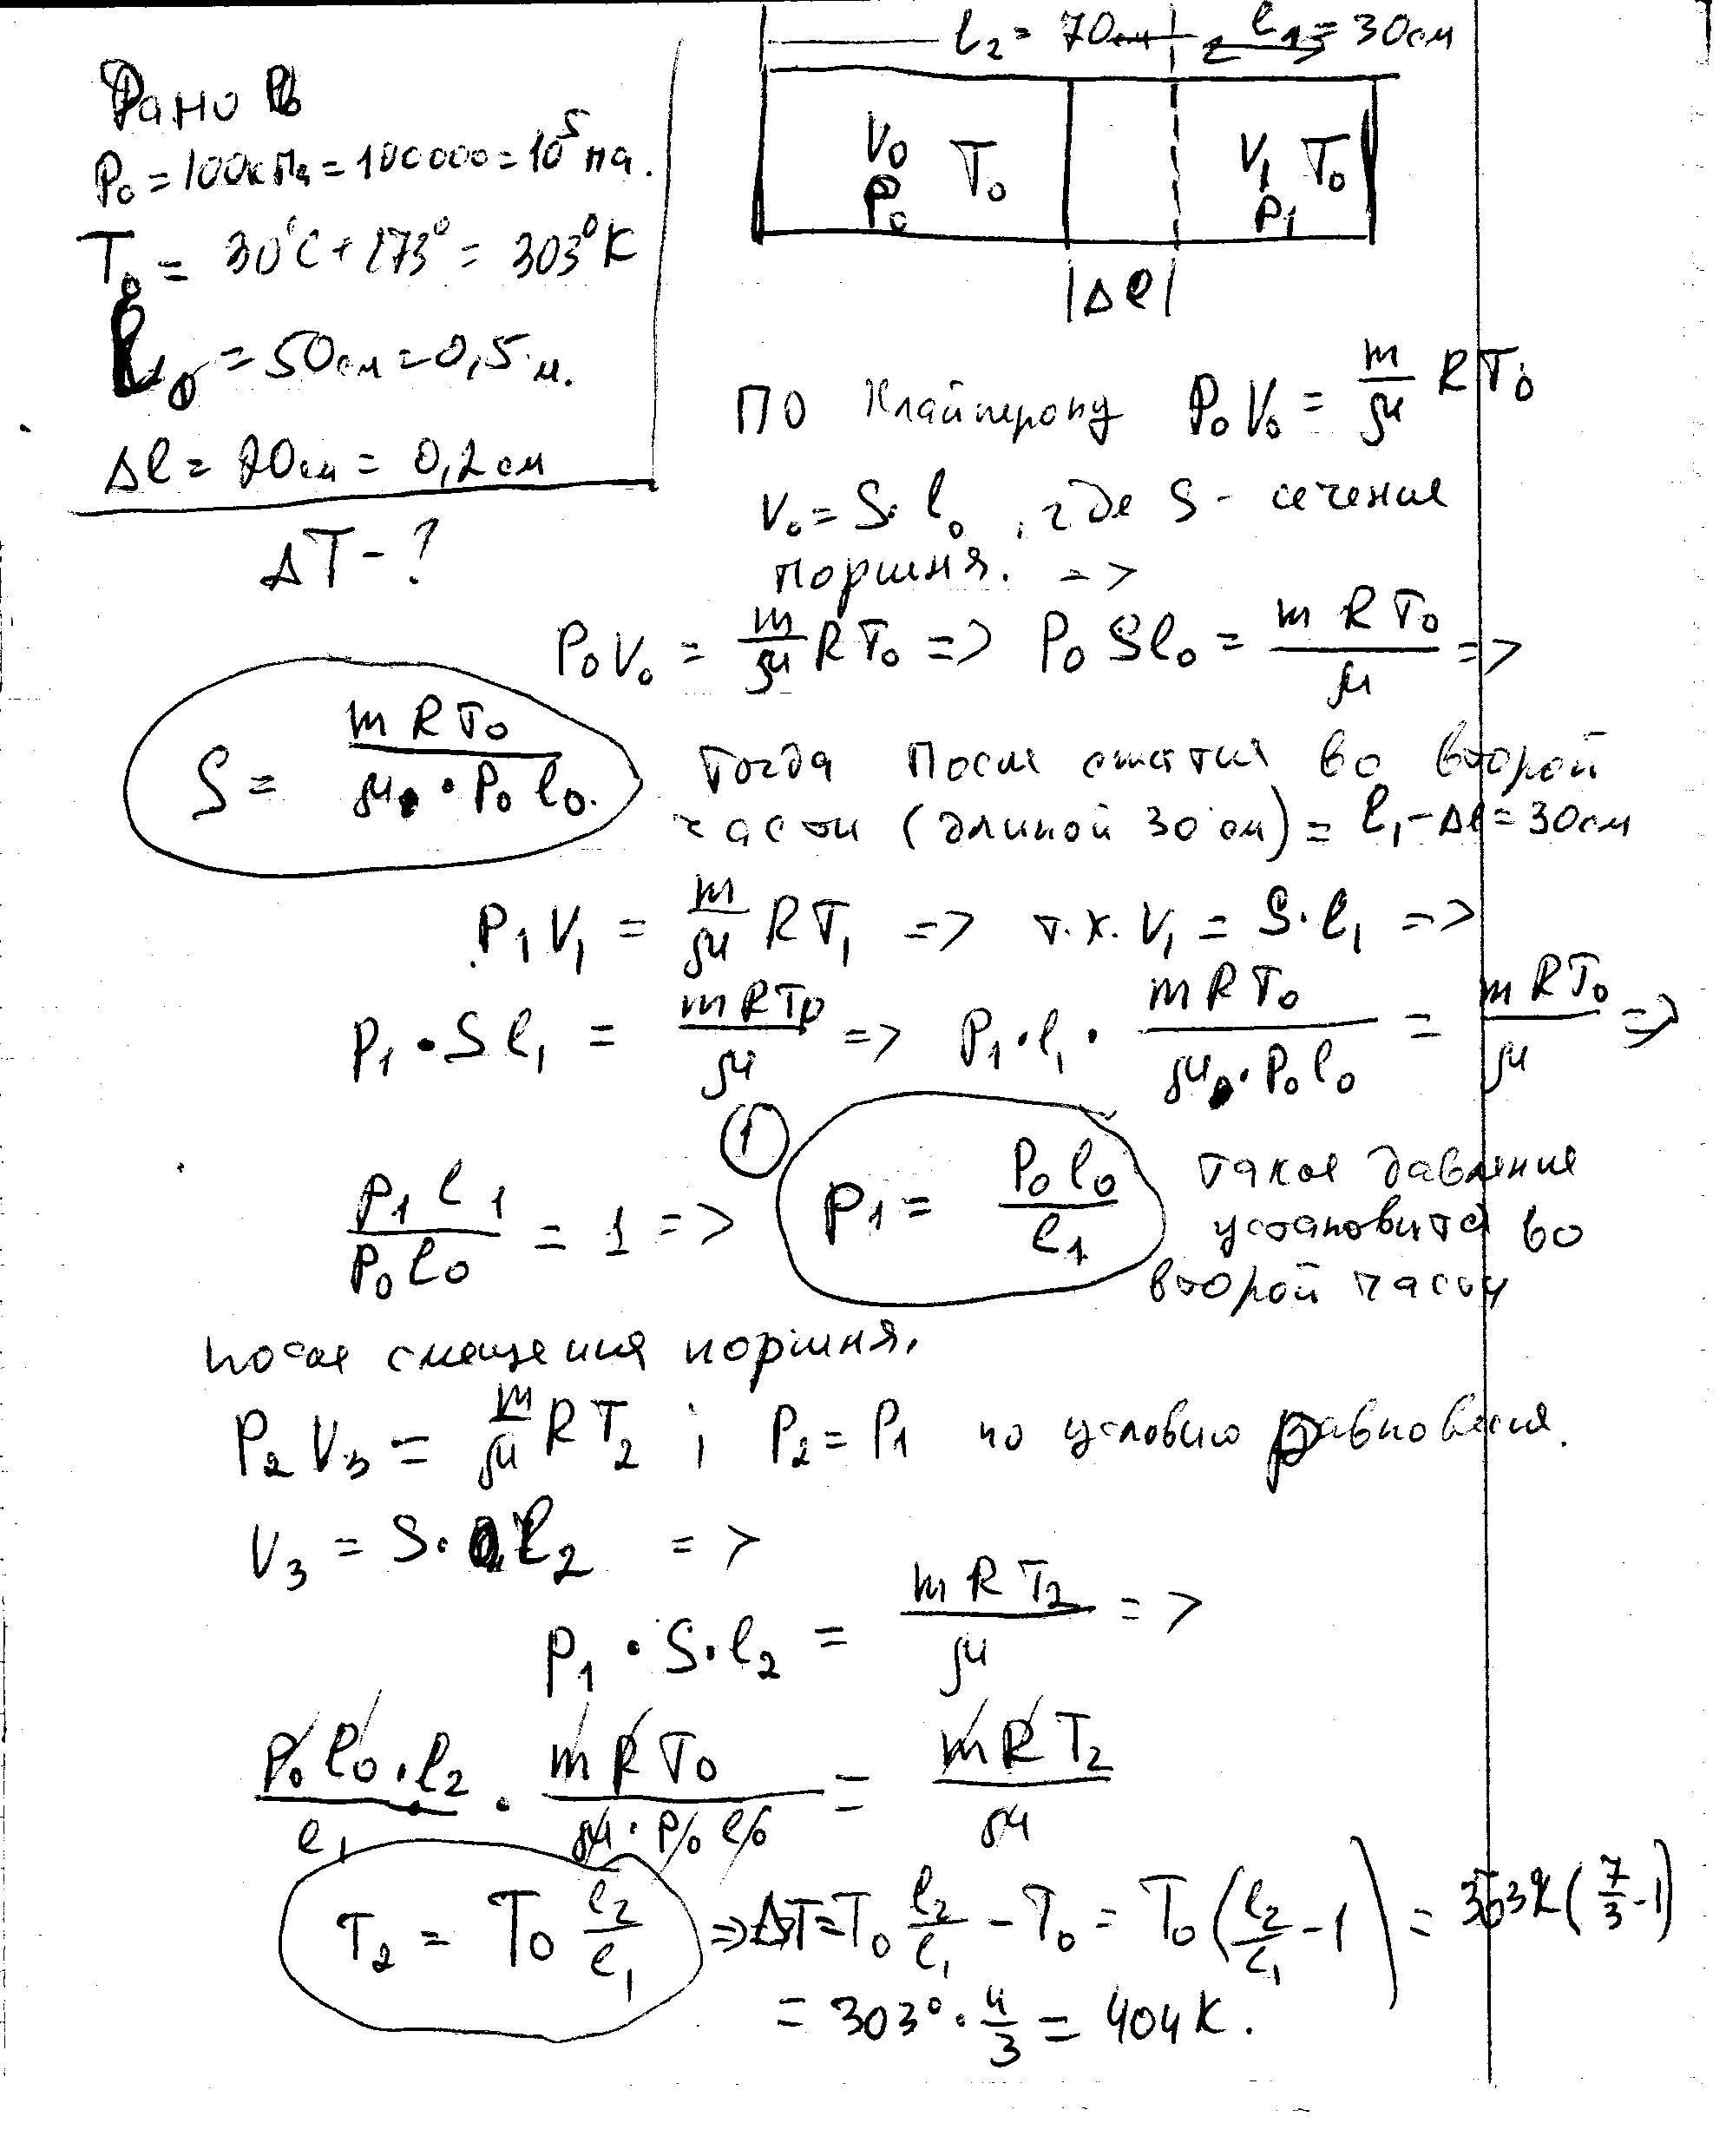 Дано
P₀ = 100кПа = 100000 = 10⁵ па.
T₀ = 30°C + 273° = 303°K
l₀ = 50см = 0,5 м.
Δl = 20см = 0,2 см
ΔT - ?
l₂ = 70см l₁ = 30см
V₀ T₀ V₁ T₀
P₀ P₁
|Δl|
ПО Клайперону P₀V₀ = m/μ RT₀
V₀ = S·l₀, где S - сечения
поршня. =>
P₀V₀ = m/μ RT₀ => P₀Sl₀ = mRT₀/μ =>
S = mRT₀/μ·P₀l₀. Тогда После сжатия во второй
части (длиной 30 см) = l₁ - Δl = 30см
P₁V₁ = m/μ RT₁ => т.к. V₁ = S·l₁ =>
P₁·Sl₁ = mRT₀/μ => P₁·l₁·mRT₀/μ·P₀l₀ = mRT₀/μ =>
P₁l₁/P₀l₀ = 1 => ① P₁ = P₀l₀/l₁ такое давление
установится во
второй части
после смещения поршня.
P₂V₃ = m/μ RT₂ ; P₂ = P₁ по условию равновесия.
V₃ = S·l₂ =>
P₁·S·l₂ = mRT₂/μ =>
P₀l₀·l₂/l₁ · mRT₀/μ·P₀l₀ = mRT₂/μ
T₂ = T₀ l₂/l₁ => ΔT = T₀ l₂/l₁ - T₀ = T₀(l₂/l₁ - 1) = 303K(7/3 - 1)
= 303°·4/3 = 404K.